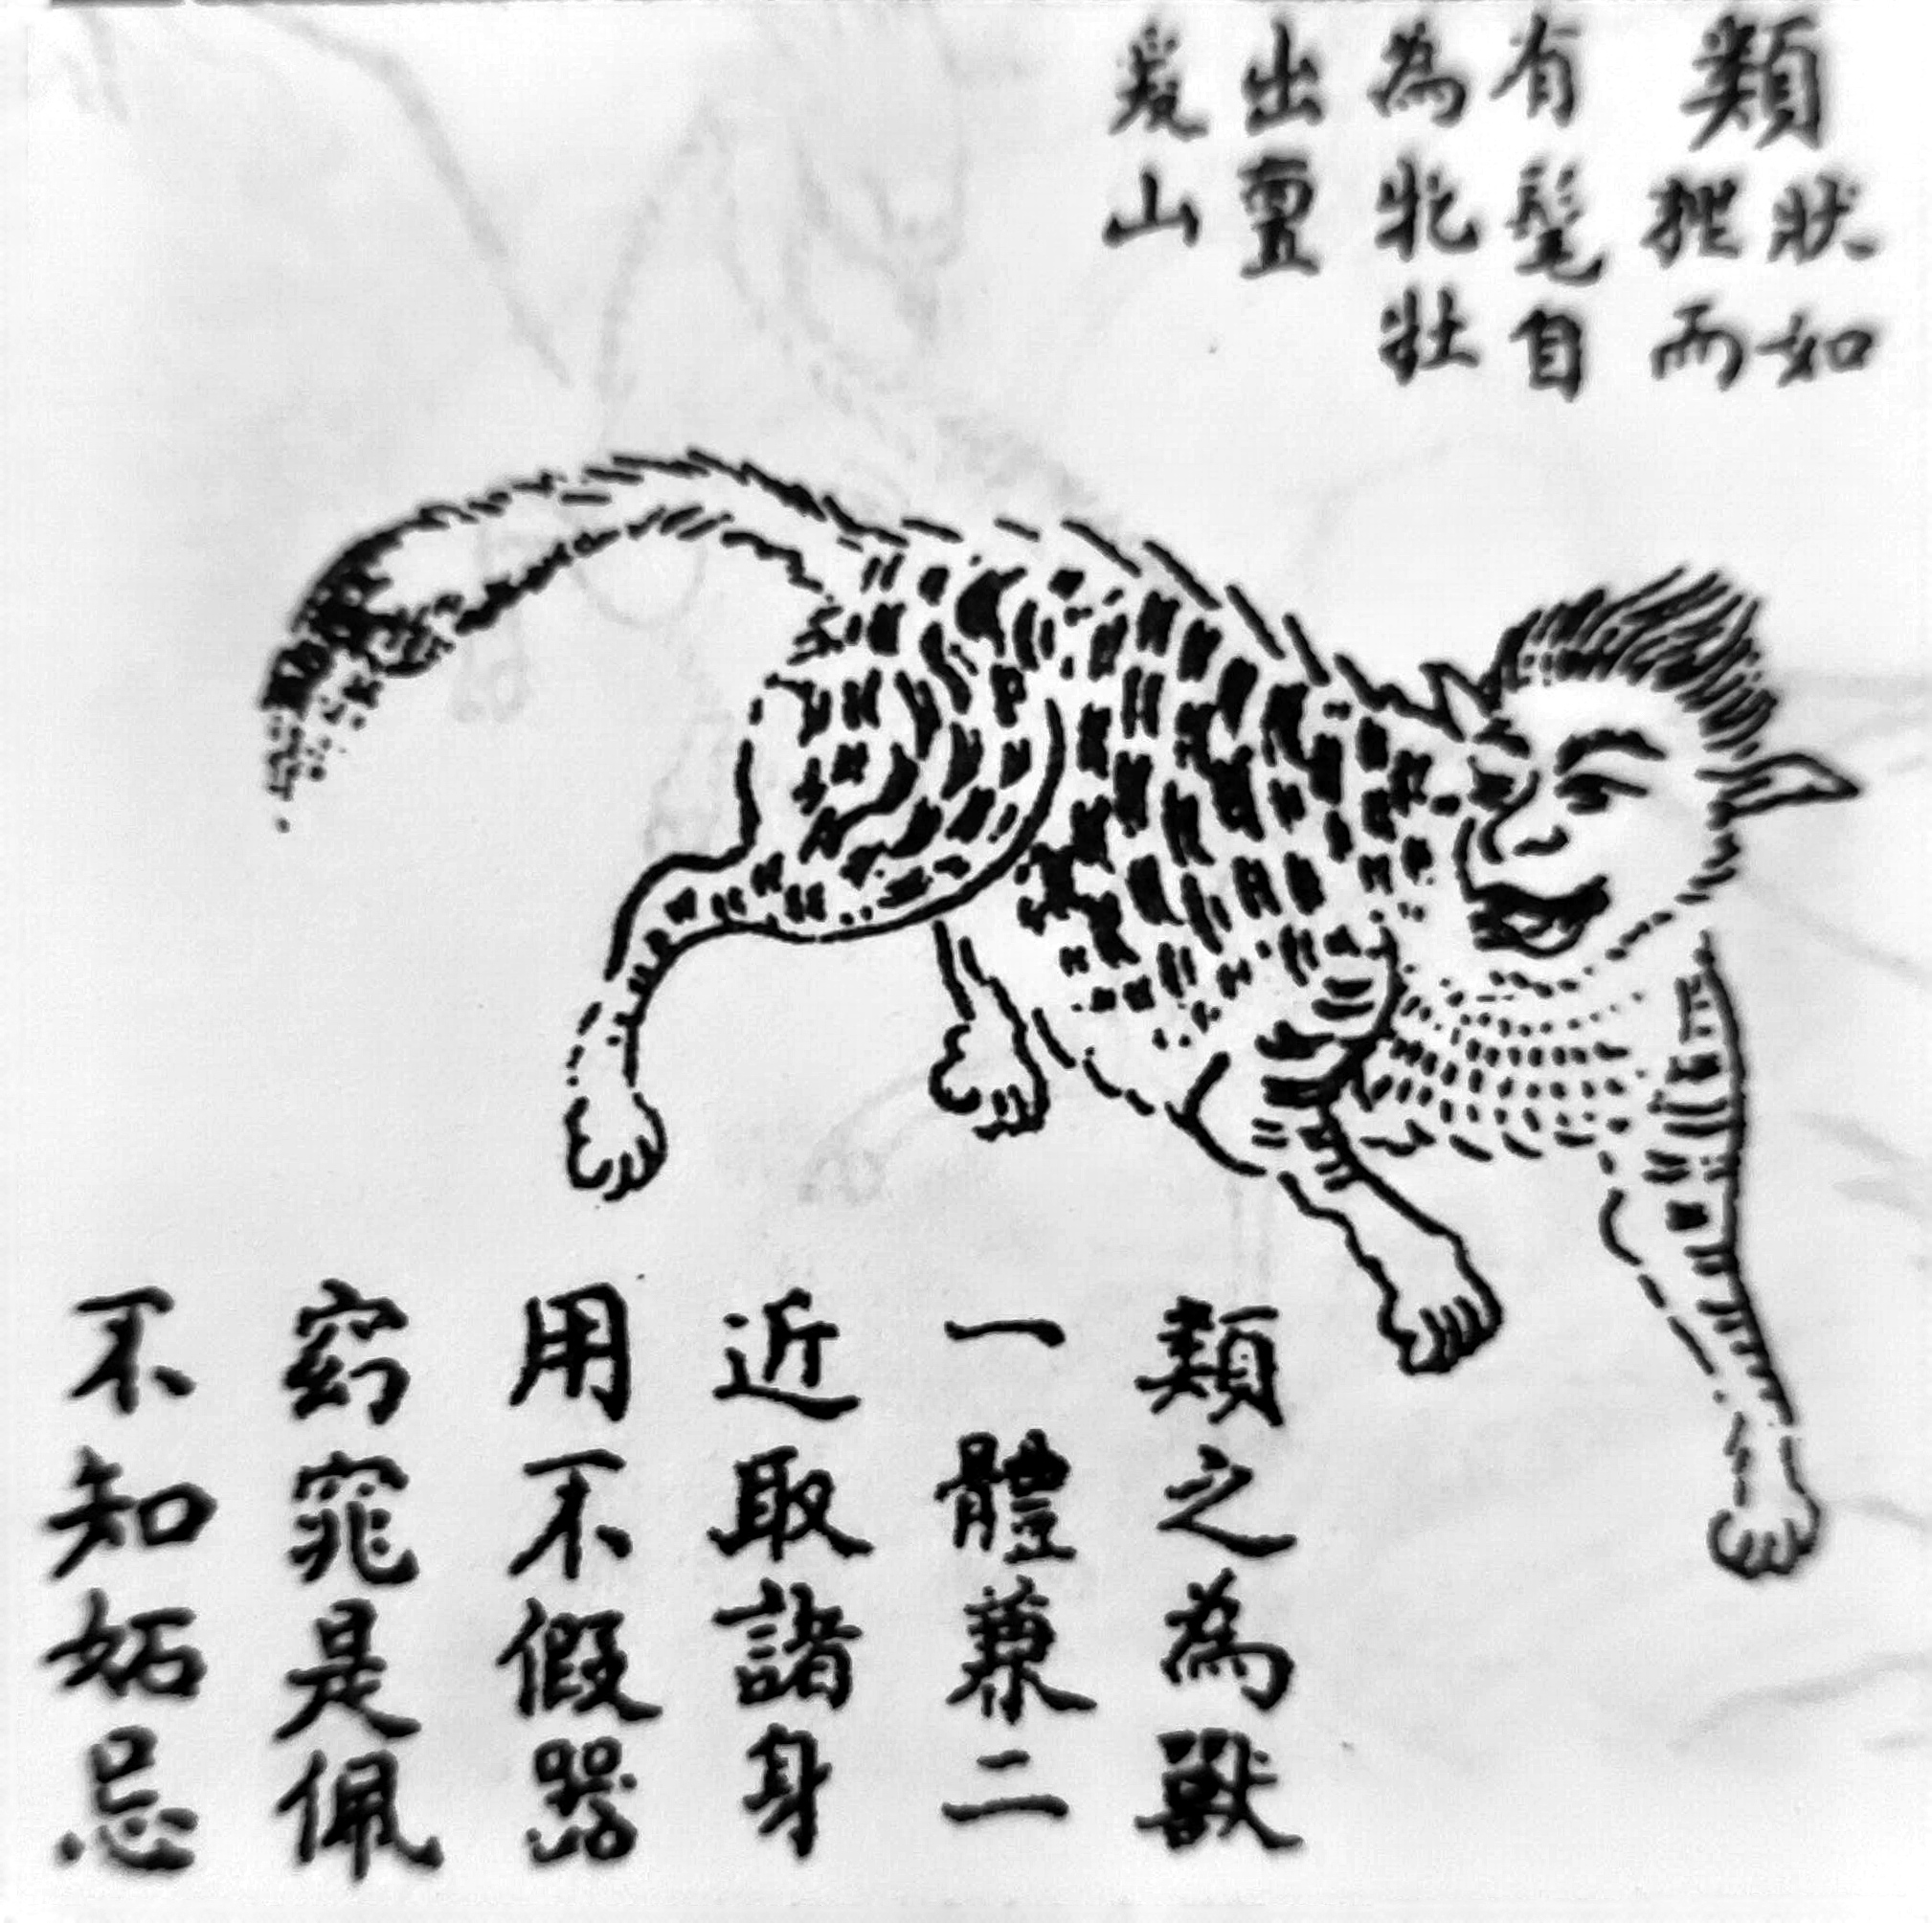 類
狀如
狸而
有髦自
為牝牡
出亶
爰山
類之為獸
一體兼二
近取諸身
用不假器
窈窕是佩
不知妬忌